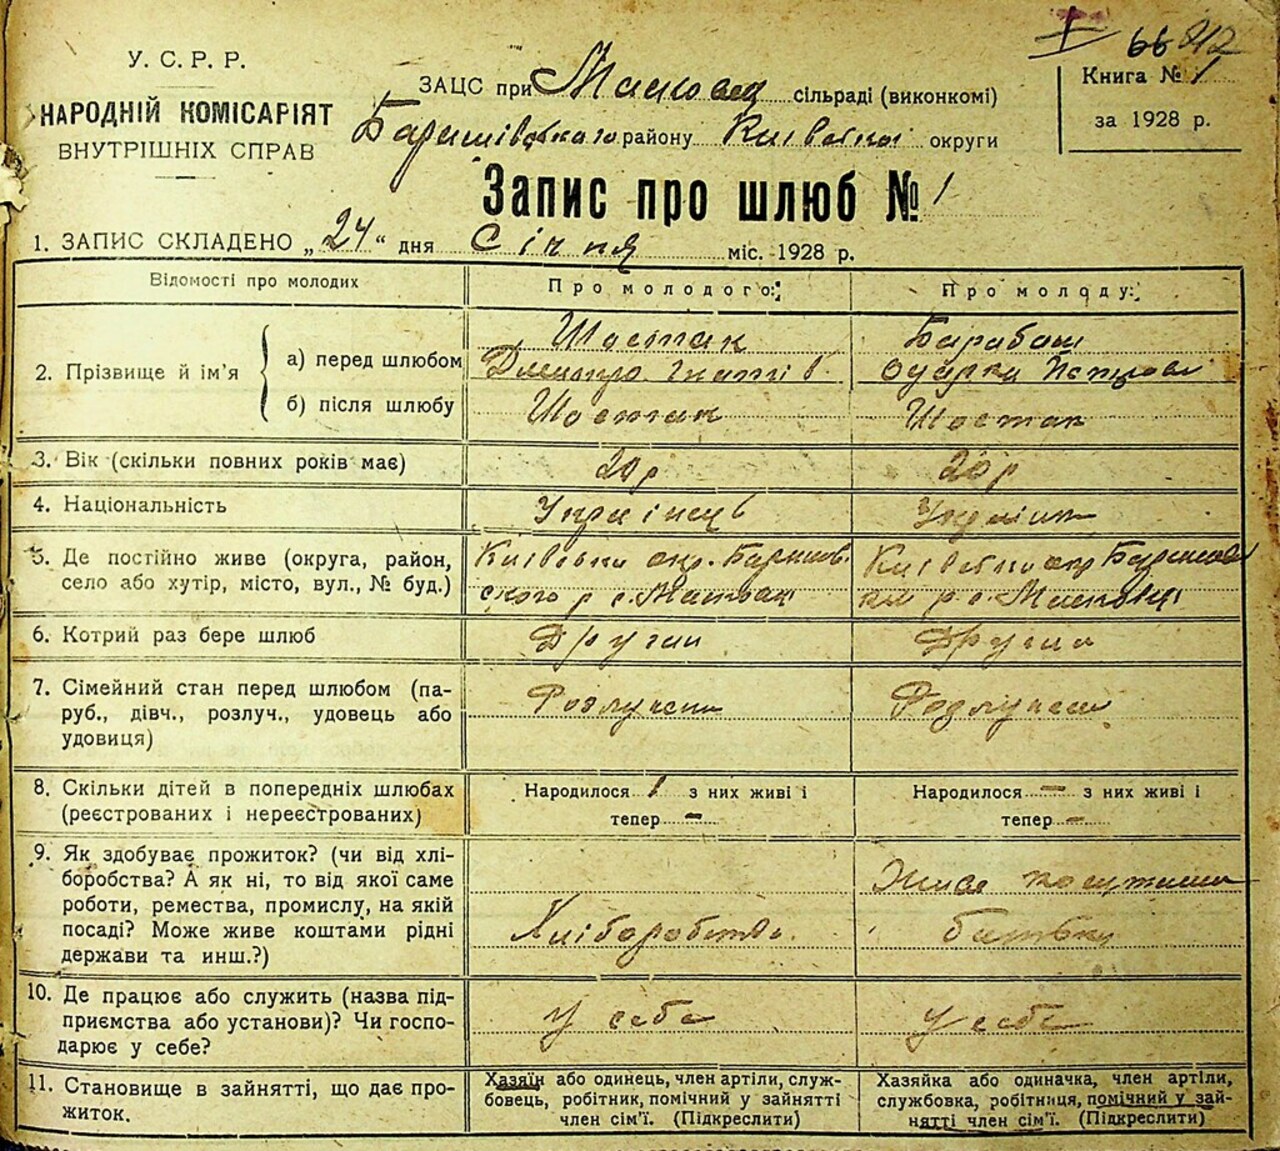 66 212
У. С. Р. Р.
НАРОДНІЙ КОМІСАРІЯТ
ВНУТРІШНІХ СПРАВ
ЗАЦС при Масковец сільраді (виконкомі)
Баришівського району Київської округи
Книга № 1
за 1928 р.
Запис про шлюб № 1
1. ЗАПИС СКЛАДЕНО „24“ дня Січня міс. 1928 р.
Відомості про молодих
Про молодого:
Про молоду:
2. Прізвище й ім'я
а) перед шлюбом
Шостак
Дмитро Гнатів
Барабаш
Одарка
б) після шлюбу
Шостак
Шостак
3. Вік (скільки повних років має)
20 р
20 р
4. Національність
Українець
Україн
5. Де постійно живе (округа, район,
село або хутір, місто, вул., № буд.)
Київська окр. Баришов
ского р с.
Київська окр Баришов
р с. Масковці
6. Котрий раз бере шлюб
Другий
Другий
7. Сімейний стан перед шлюбом (па-
руб., дівч., розлуч., удовець або
удовиця)
Розлучені
Розлучені
8. Скільки дітей в попередніх шлюбах
(реєстрованих і нереєстрованих)
Народилося 1 з них живі і
тепер –
Народилося – з них живі і
тепер –
9. Як здобуває прожиток? (чи від хлі-
боробства? А як ні, то від якої саме
роботи, ремества, промислу, на якій
посаді? Може живе коштами рідні
держави та инш.?)
Хліборобство
Живе
батьки
10. Де працює або служить (назва під-
приємства або установи)? Чи госпо-
дарює у себе?
У себе
У себе
11. Становище в зайнятті, що дає про-
житок.
Хазяїн або одинець, член артілі, служ-
бовець, робітник, помічний у зайнятті
член сім'ї. (Підкреслити)
Хазяйка або одиначка, член артіли,
службовка, робітниця, помічний у зай-
нятті член сім'ї. (Підкреслити)